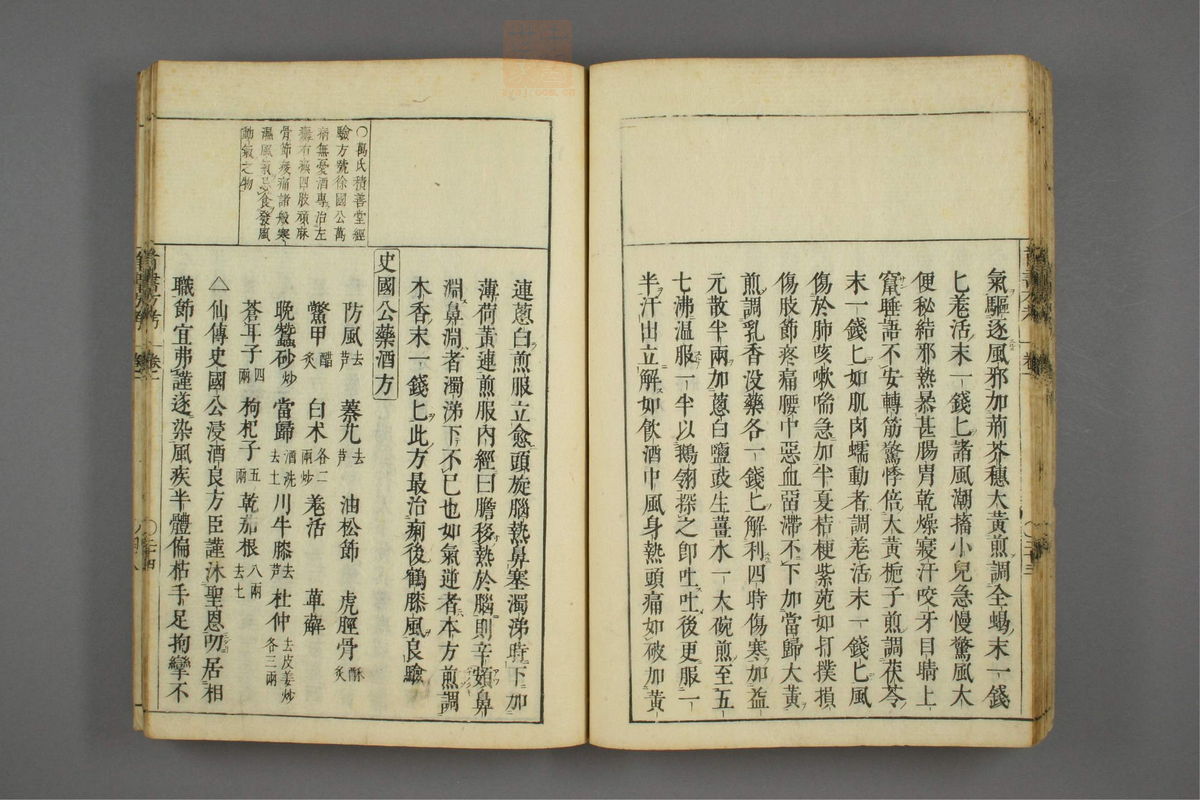 氣驅逐風邪加荊芥穗大黃煎調全蝎末一錢
匕羌活末一錢匕諸風潮搐小兒急慢驚風大
便秘結邪熱暴甚腸胃乾燥寢汗咬牙目睛上
竄睡語不安轉筋驚悸倍大黃梔子煎調茯苓
末一錢匕如肌肉蠕動者調羌活末一錢匕風
傷於肺咳嗽喘急加半夏桔梗紫菀如打撲損
傷肢節疼痛腰中惡血畱滯不下加當歸大黃
煎調乳香没藥各一錢匕解利四時傷寒加益
元散半兩加蔥白鹽豉生薑水一大碗煎至五
七沸温服一半以鵝翎探之卽吐吐後更服一
半汗出立解如飲酒中風身熱頭痛如破加黃
連蔥白煎服立愈頭旋腦熱鼻塞濁涕時下加
薄荷黃連煎服内經曰膽移熱於腦則辛頞鼻
淵鼻淵者濁涕下不已也如氣逆者本方煎調
木香末一錢匕此方最治痢後鶴膝風良驗
史國公藥酒方
防風去芦 蓁艽去芦 油松節 虎脛骨酥炙
鱉甲醋炙 白术各二兩炒 羌活 萆薢
晚蠶砂炒 當歸酒洗去土 川牛膝去芦 杜仲去皮姜炒各三兩
蒼耳子四兩 枸杞子五兩 乾茄根八兩去土
△仙傳史國公浸酒良方臣謹沐聖恩叨居相
職節宜弗謹遂染風疾半體偏枯手足拘攣不
〇萬氏積善堂經
驗方號徐國公萬
病無憂酒專治左
癱右瘓四肢頑麻
骨節疼痛諸般寒
濕風氣忌食發風
動氣之物